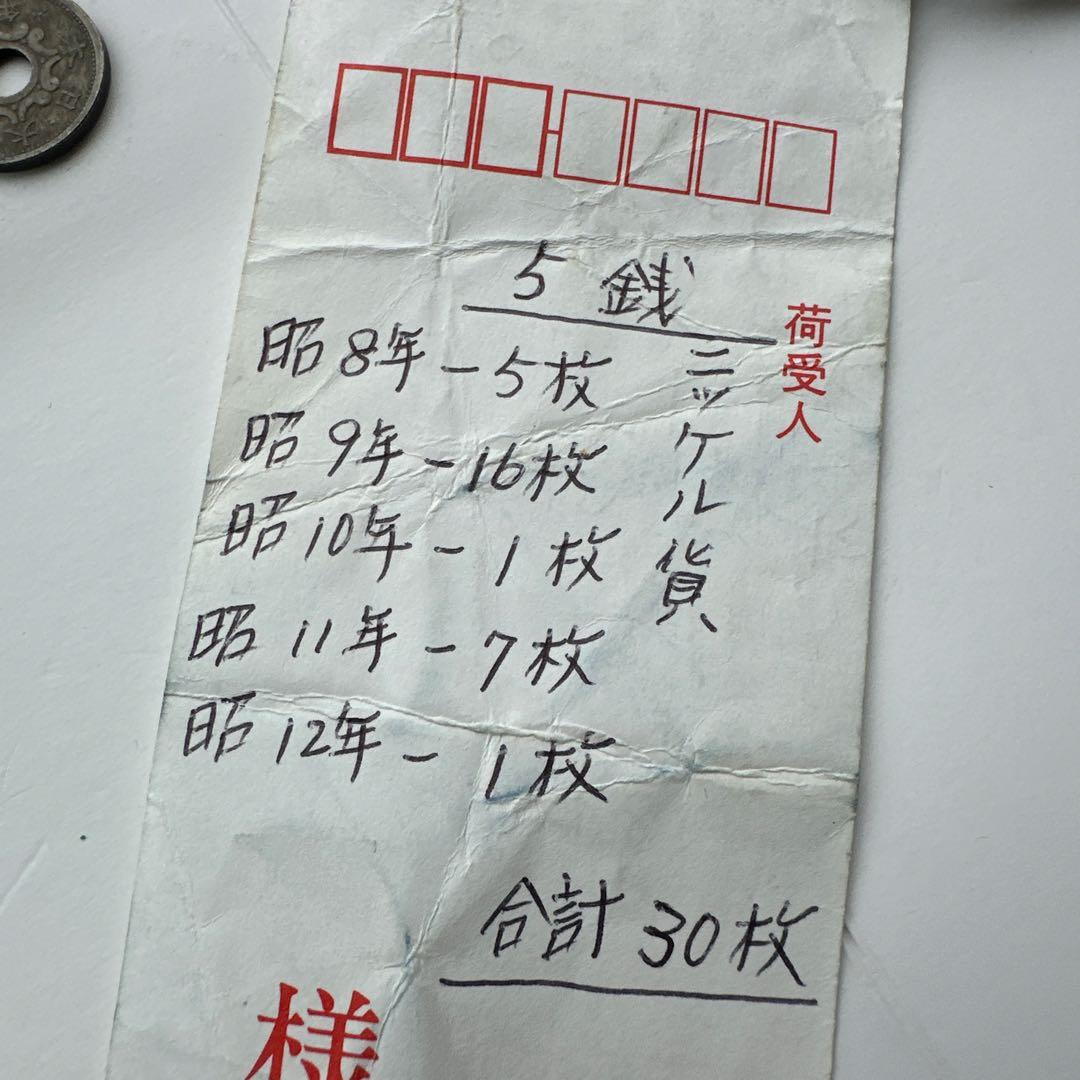 5 銭
ニッケル貨
昭 8年 - 5枚
昭 9年 - 16枚
昭 10年 - 1枚
昭 11年 - 7枚
昭 12年 - 1枚
合計 30枚
荷受人
様